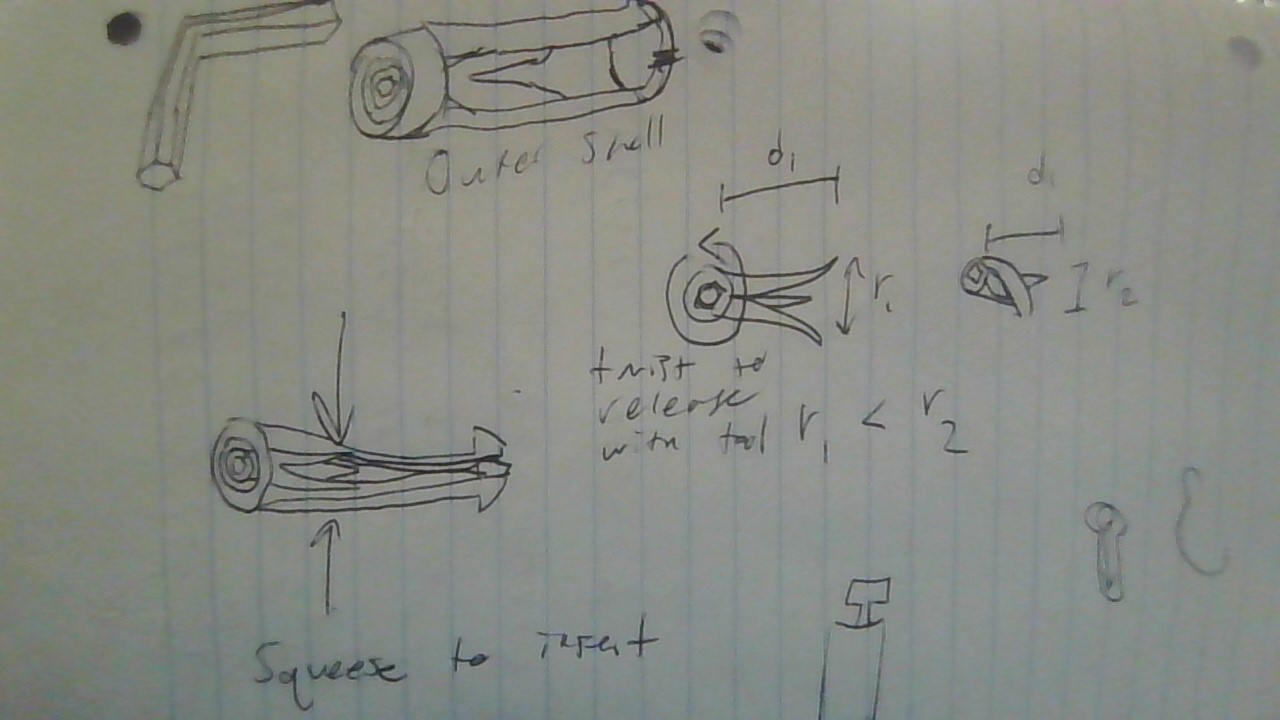 Outer Shell
d₁
d₁
r₁
r₂
twist to
release
with tool
r₁ < r₂
Squeese to insert